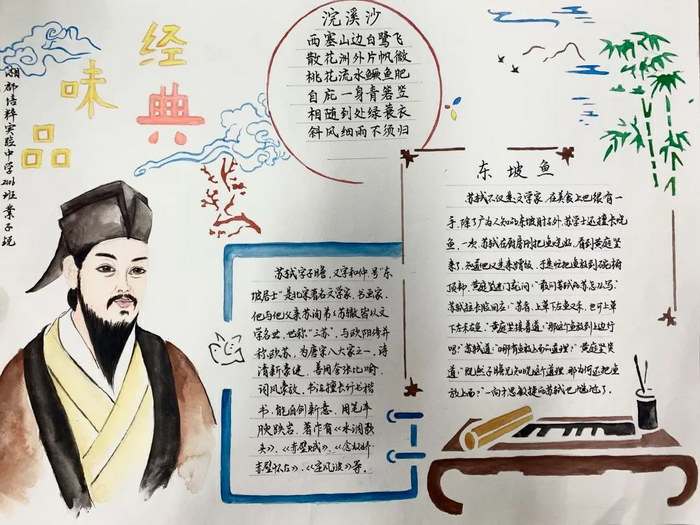 品味经典
湘郡培粹实验中学
浣溪沙
西塞山边白鹭飞
散花洲外片帆微
桃花流水鳜鱼肥
自庇一身青箬笠
相随到处绿蓑衣
斜风细雨不须归
苏轼字子瞻，又字和仲，号"东
坡居士"是北宋著名文学家、书画家，
他与他父亲苏洵弟苏辙皆以文
学名世，世称"三苏"，与欧阳修并
称欧苏，为唐宋八大家之一，诗
清新豪健，善用夸张比喻
词风豪放，书法擅长行书楷
书，能自创新意，用笔丰
腴跌宕，著作有《水调歌
头》、《赤壁赋》、《念奴娇
赤壁怀古》、《定风波》等。
东坡鱼
苏轼不仅是文学家，在美食上也很有一
手，除了广为人知的东坡肘子外，苏学士还擅长烧
鱼，一次，苏轼在厨房刚把鱼烧好，看到黄庭坚
来了，知道他又是来蹭饭，于是忙把鱼放到碗橱
顶部，黄庭坚进门就问："敢问苏轼的苏怎么写"
苏轼拉长脸回应："苏者，上草下左鱼又禾，也可上草
下左禾右鱼，"黄庭坚接着道："那这个鱼放到上边行
吗？"苏轼道："哪有鱼放上面的道理？"黄庭坚笑
道："既然子瞻兄知晓这个道理，那为何还把鱼
放上面？"一向才思敏捷的苏轼也